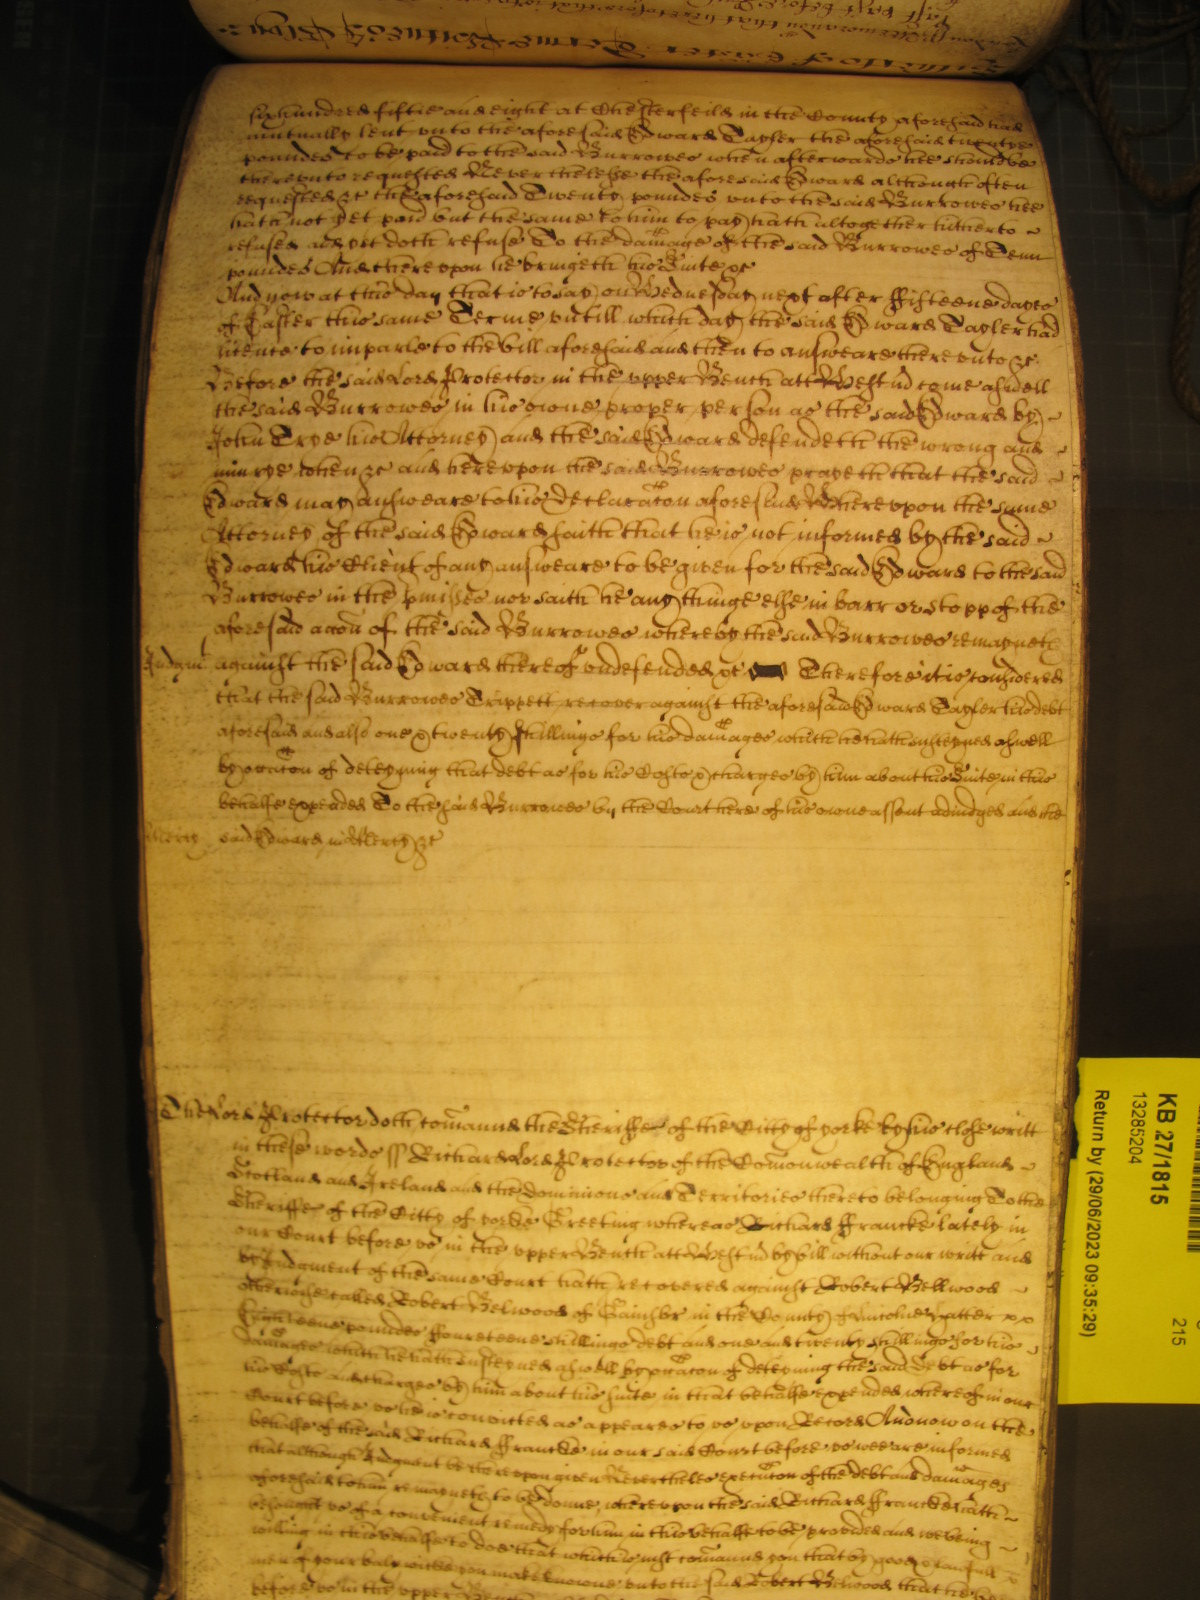 six hundred fiftie and eight at Chesterfeild in the County aforesaid had
mutually lent unto the aforesaid Edward Tayler the aforesaid twentye
poundes to be paid to the said Burrowes when afterwards hee should be
thereunto requested Neverthelesse the aforesaid Edward although often
requested &c the aforesaid Twenty poundes unto the said Burrowes hee
hath not yet paid but the same to him to pay hath altogether hitherto
refused and yet doth refuse To the damage of the said Burrowes of Tenn
poundes And thereupon he bringeth his Suite &c
And now at this day that is to say on Wednesday next after fifteene dayes
of Easter this same Terme untill which day the said Edward Tayler had
licence to imparle to the bill aforesaid and then to answeare thereunto &c
Before the said Lord Protector in the upper Bench att Westm̄ come aswell
the said Burrowes in his owne proper person as the said Edward by
John Trye his Attorney and the said Edward defendeth the wrong and
iniurye when &c and hereupon the said Burrowes prayeth that the said
Edward may answeare to his declaracon aforesaid Whereupon the same
Attorney of the said Edward saith that he is not informed by the said
Edward his Client of any answeare to be given for the said Edward to the said
Burrowes in the p̄misses nor saith he any thinge else in barr or stopp of the
aforesaid accon of the said Burrowes whereby the said Burrowes remayneth
Judgm̄t against the said Edward thereof undefended &c Therefore it is considered
that the said Burrowes Trippett recover against the aforesaid Edward Tayler his debt
aforesaid and also one & twenty shillings for his damages which he hath susteyned aswell
by occacon of deteyning that debt as for his Costs & charges by him about his Suite in this
behalfe expended To the said Burrowes by the Court here of his owne assent adiudged and the
Mercy said Edward in Mercy &c
The Lord Protector doth comaund the Sheriffe of the Citty of yorke by his close writt
in these words ss Richard Lord Protector of the Comonwealth of England
Scotland and Ireland and the dominions and Territories thereto belonging To the
Sheriffe of the Citty of yorke Greeting whereas Richard Francke lately in
our Court before us in the upper Bench att Westm̄ by bill without our writt and
by Judgment of the same Court hath recovered against Robert Bellwood
otherwise called Robert Belwood of in the County of
Eighteene poundes foureteene shillings debt and one and twenty shillings for his
damages which he hath susteyned aswell by occacon of deteyning the said debt as for
his Costs and charges by him about his suite in that behalfe expended whereof in our
Court before us he is convicted as appeares to us upon Record And now on the
behalfe of the said Richard Francke in our said Court before us wee are informed
that although Judgment be thereupon given Neverthelesse execucon of the debt and damages
aforesaid to him remayneth to be donne, whereupon the said Richard Francke hath
besought us of a convenient remedy for him in this behalfe to be provided and we being
willing in this behalfe to doe that which is iust comaund you that by good & lawfull
men of your bayliwicke you make knowne unto the said Robert Belwood that he be
before us in the upper Bench
KB 27/1815
13285204
Return by (29/06/2023 09:35:29)
215